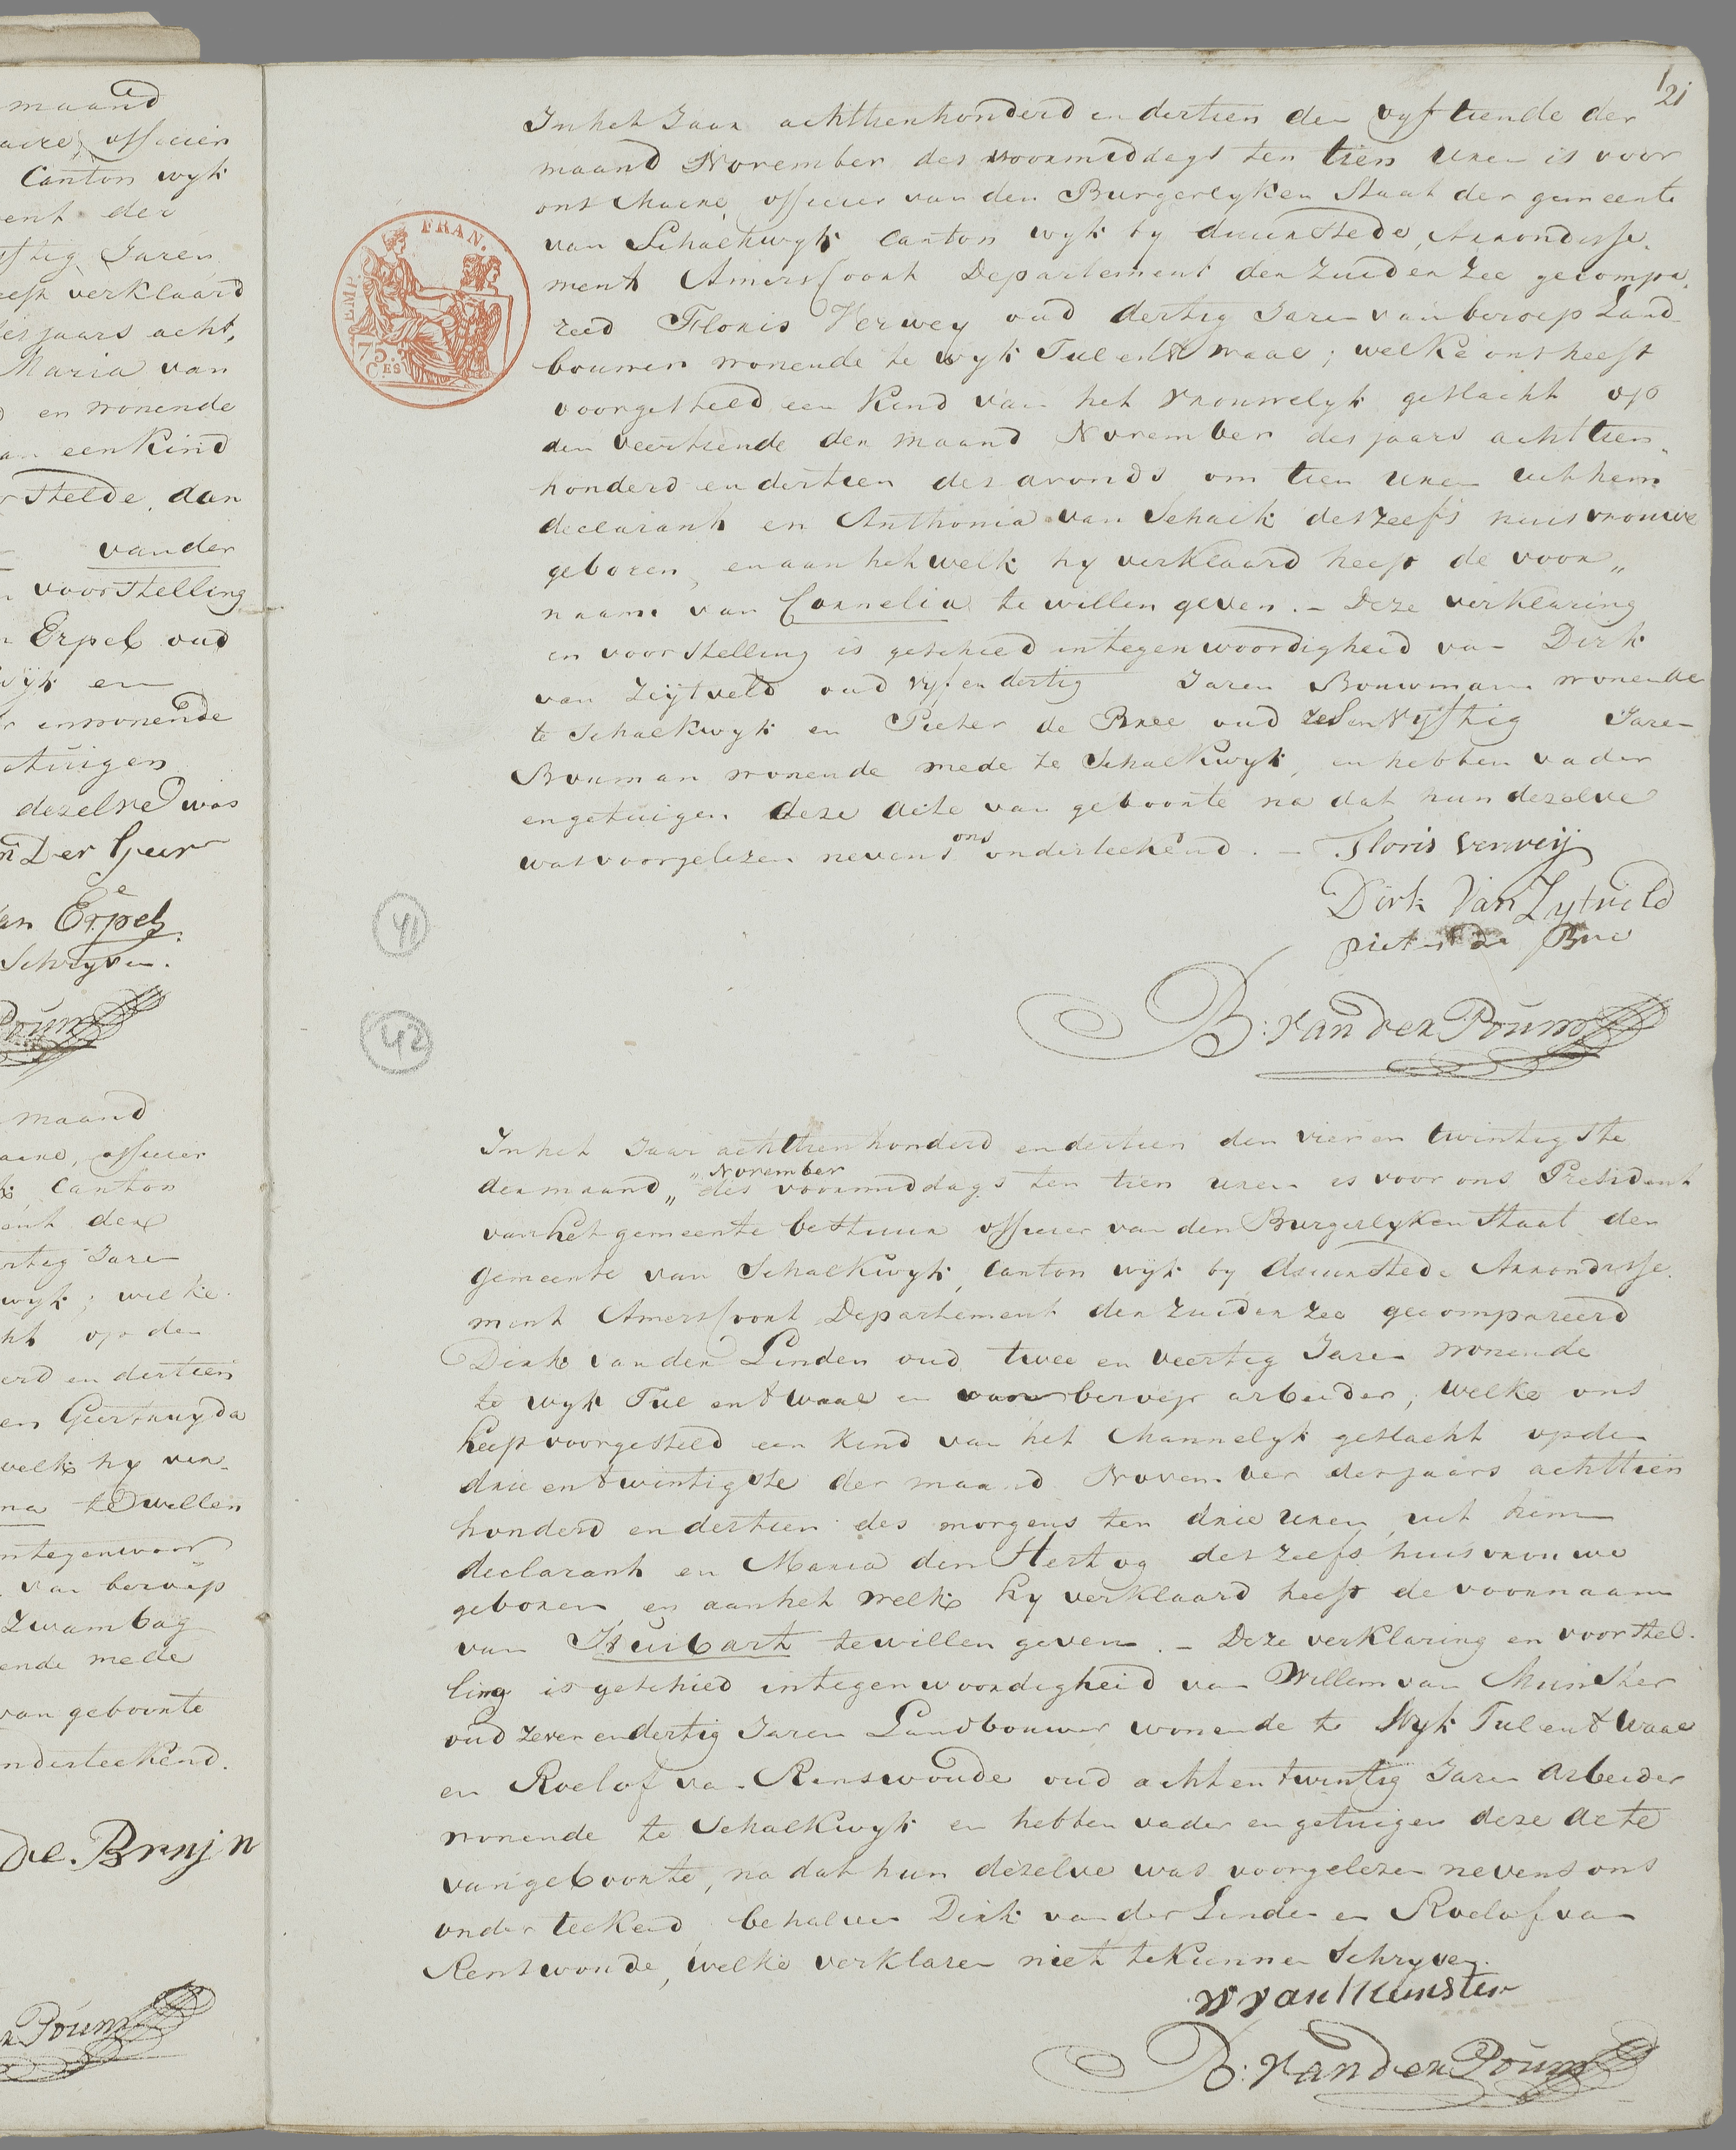 maand
aire, officier
Canton wyk
ent der
yftig Jaren
eeft verklaard
des jaars acht,
Maria van
en wonende
an een Kind
rstelde, dan
vander
voorstelling
n Erpel oud
wijk en
r en wonende
etuigen
dezelve was
n Der Geur
an Erpel
Schryven.
Poum
maand
aire, officier
Canton
ent der
rtig Jaren
wyk; welke
ht op den
erd en dertien
en Geertruyda
welk hy ver-
na te willen
ntegenwoor-
van beroep
Zwambag
ende mede
van geboorte
nderteekend.
de Bruijn
n Poum
1/21
EMP. FRAN.
75. CES
In het Jaar achttienhonderd en dertien den vyftiende der
maand November des voormiddags ten tien uren is voor
ons Maire, officier van den Burgerlyken Staat der gemeente
van Schalkwyk Canton wyk by duurstede, Arrondisse-
ment Amersfoort Departement der Zuider Zee gecompa-
reed Floris Verwey oud dertig Jaren van beroep Land-
bouwer wonende te wyk Tul ent Waal; welke ons heeft
voorgesteld een Kind van het Vrouwelyk geslacht op
den veertiende der maand November des jaars achttien-
honderd en dertien des avonds om tien uren uit hem
declarant en Anthonia van Schaik deszelfs huisvrouwe
geboren, en aan hetwelk hy verklaard heeft de voor„
naam van Cornelia te willen geven. - Deze verklaring
en voorstelling is geschied in tegenwoordigheid van Dirk
van Zijtveld oud vyf en dertig Jaren Bouwman wonende
te Schalkwyk en Pieter de Bree oud zes en vyftig Jaren
Bouman wonende mede te Schalkwyk, en hebben vader
en getuigen deze acte van geboorte na dat hun dezelve
was voorgelezen nevens ons onderteekend. - Floris verweij
Dirk Van Zytveld
pieter de Bree
41
B: van der Poum
42
In het Jaar achttienhonderd en dertien den vier en twintigste
der maand „ November des voormiddags ten tien uren is voor ons President
van het gemeente bestuur officier van den Burgerlyken Staat der
gemeente van Schalkwyk, Canton wyk by duurstede Arrondisse-
ment Amersfoort Departement der Zuider Zee gecompareerd
Dirk van der Linden oud twee en veertig Jaren wonende
te wyk Tul ent Waal en van beroep arbeider; welke ons
heeft voorgesteld een Kind van het Mannelyk geslacht op den
drie en twintigste der maand November des jaars achttien
honderd en dertien des morgens ten drie uren uit hem
declarant en Maria den Hertog deszelfs huisvrouwe
geboren en aan het welk hy verklaard heeft de voornaam
van Huibart te willen geven. - Deze verklaring en voorstel-
ling is geschied in tegenwoordigheid van Willem van Munster
oud zeven en dertig Jaren Landbouwer wonende te Wyk Tul ent Waal
en Roelof van Renswoude oud acht en twintig Jaren Arbeider
wonende te Schalkwyk en hebben vader en getuigen deze acte
van geboorte, na dat hun dezelve was voorgelezen nevens ons
onderteekend behalven Dirk van der Linden en Roelof van
Renswoude, welke verklaren niet te kunnen Schryven.
W van Munster
B: van der Poum